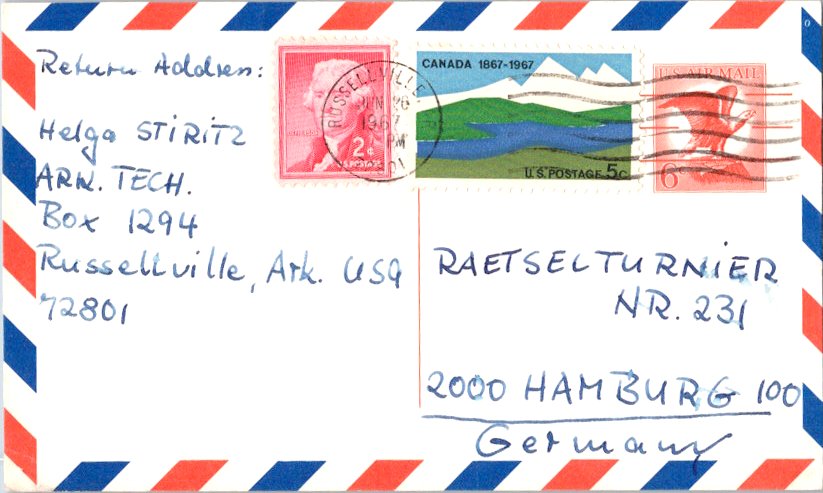 Return Address:
Helga STIRITZ
ARK. TECH.
Box 1294
Russellville, Ark. USA
72801
2¢
U.S. POSTAGE
RUSSELLVILLE
JUN 26
1967
PM
CANADA 1867-1967
U.S. POSTAGE 5c
U.S. AIR MAIL
6c
RAETSELTURNIER
NR. 231
2000 HAMBURG 100
Germany